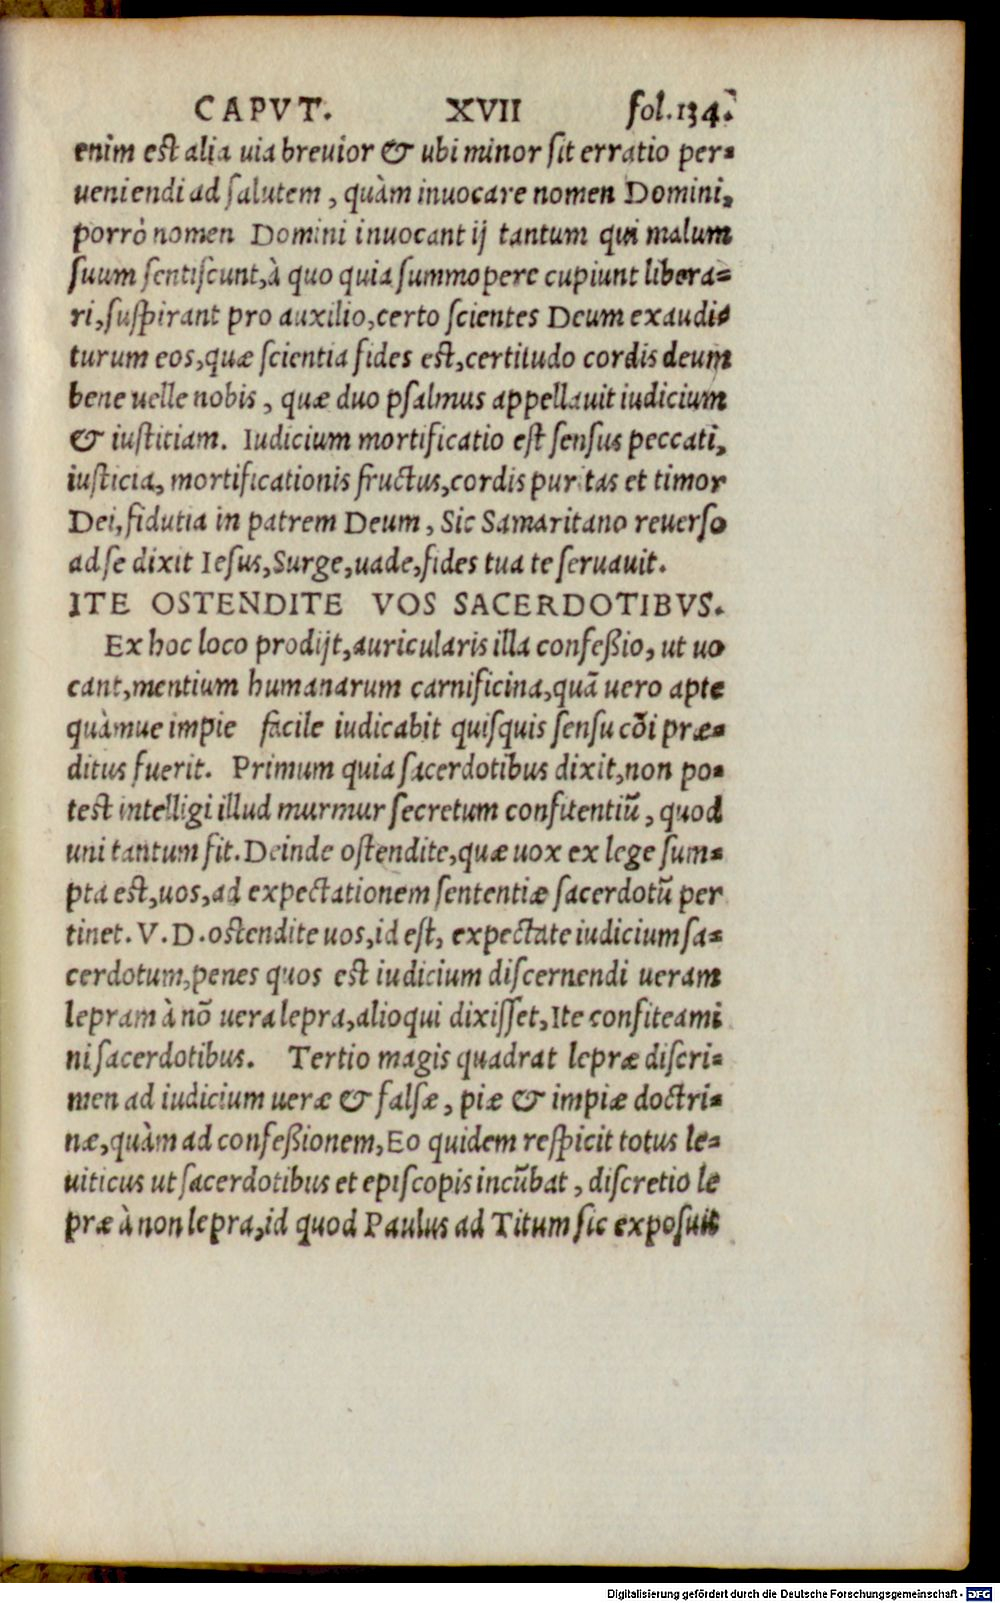 CAPVT. XVII fol.134.
enim est alia uia breuior & ubi minor sit erratio per-
ueniendi ad salutem, quàm inuocare nomen Domini,
porrò nomen Domini inuocant ij tantum qui malum
suum sentiscunt, à quo quia summopere cupiunt libera-
ri, suspirant pro auxilio, certo scientes Deum exaudi-
turum eos, quæ scientia fides est, certitudo cordis deum
bene uelle nobis, quæ duo psalmus appellauit iudicium
& iustitiam. Iudicium mortificatio est sensus peccati,
iusticia, mortificationis fructus, cordis puritas et timor
Dei, fidutia in patrem Deum, Sic Samaritano reuerso
ad se dixit Iesus, Surge, uade, fides tua te seruauit.
ITE OSTENDITE VOS SACERDOTIBVS.
Ex hoc loco prodijt, auricularis illa confeßio, ut uo
cant, mentium humanarum carnificina, quā uero apte
quàmue impie facile iudicabit quisquis sensu cōi præ-
ditus fuerit. Primum quia sacerdotibus dixit, non po-
test intelligi illud murmur secretum confitentiū, quod
uni tantum fit. Deinde ostendite, quæ uox ex lege sum-
pta est, uos, ad expectationem sententiæ sacerdotū per
tinet. V.D. ostendite uos, id est, expectate iudicium sa-
cerdotum, penes quos est iudicium discernendi ueram
lepram à nō uera lepra, alioqui dixisset, Ite confiteami
ni sacerdotibus. Tertio magis quadrat lepræ discri-
men ad iudicium ueræ & falsæ, piæ & impiæ doctri-
næ, quàm ad confeßionem, Eo quidem respicit totus le-
uiticus ut sacerdotibus et episcopis incūbat, discretio le
præ à non lepra, id quod Paulus ad Titum sic exposuit
Digitalisierung gefördert durch die Deutsche Forschungsgemeinschaft - DFG